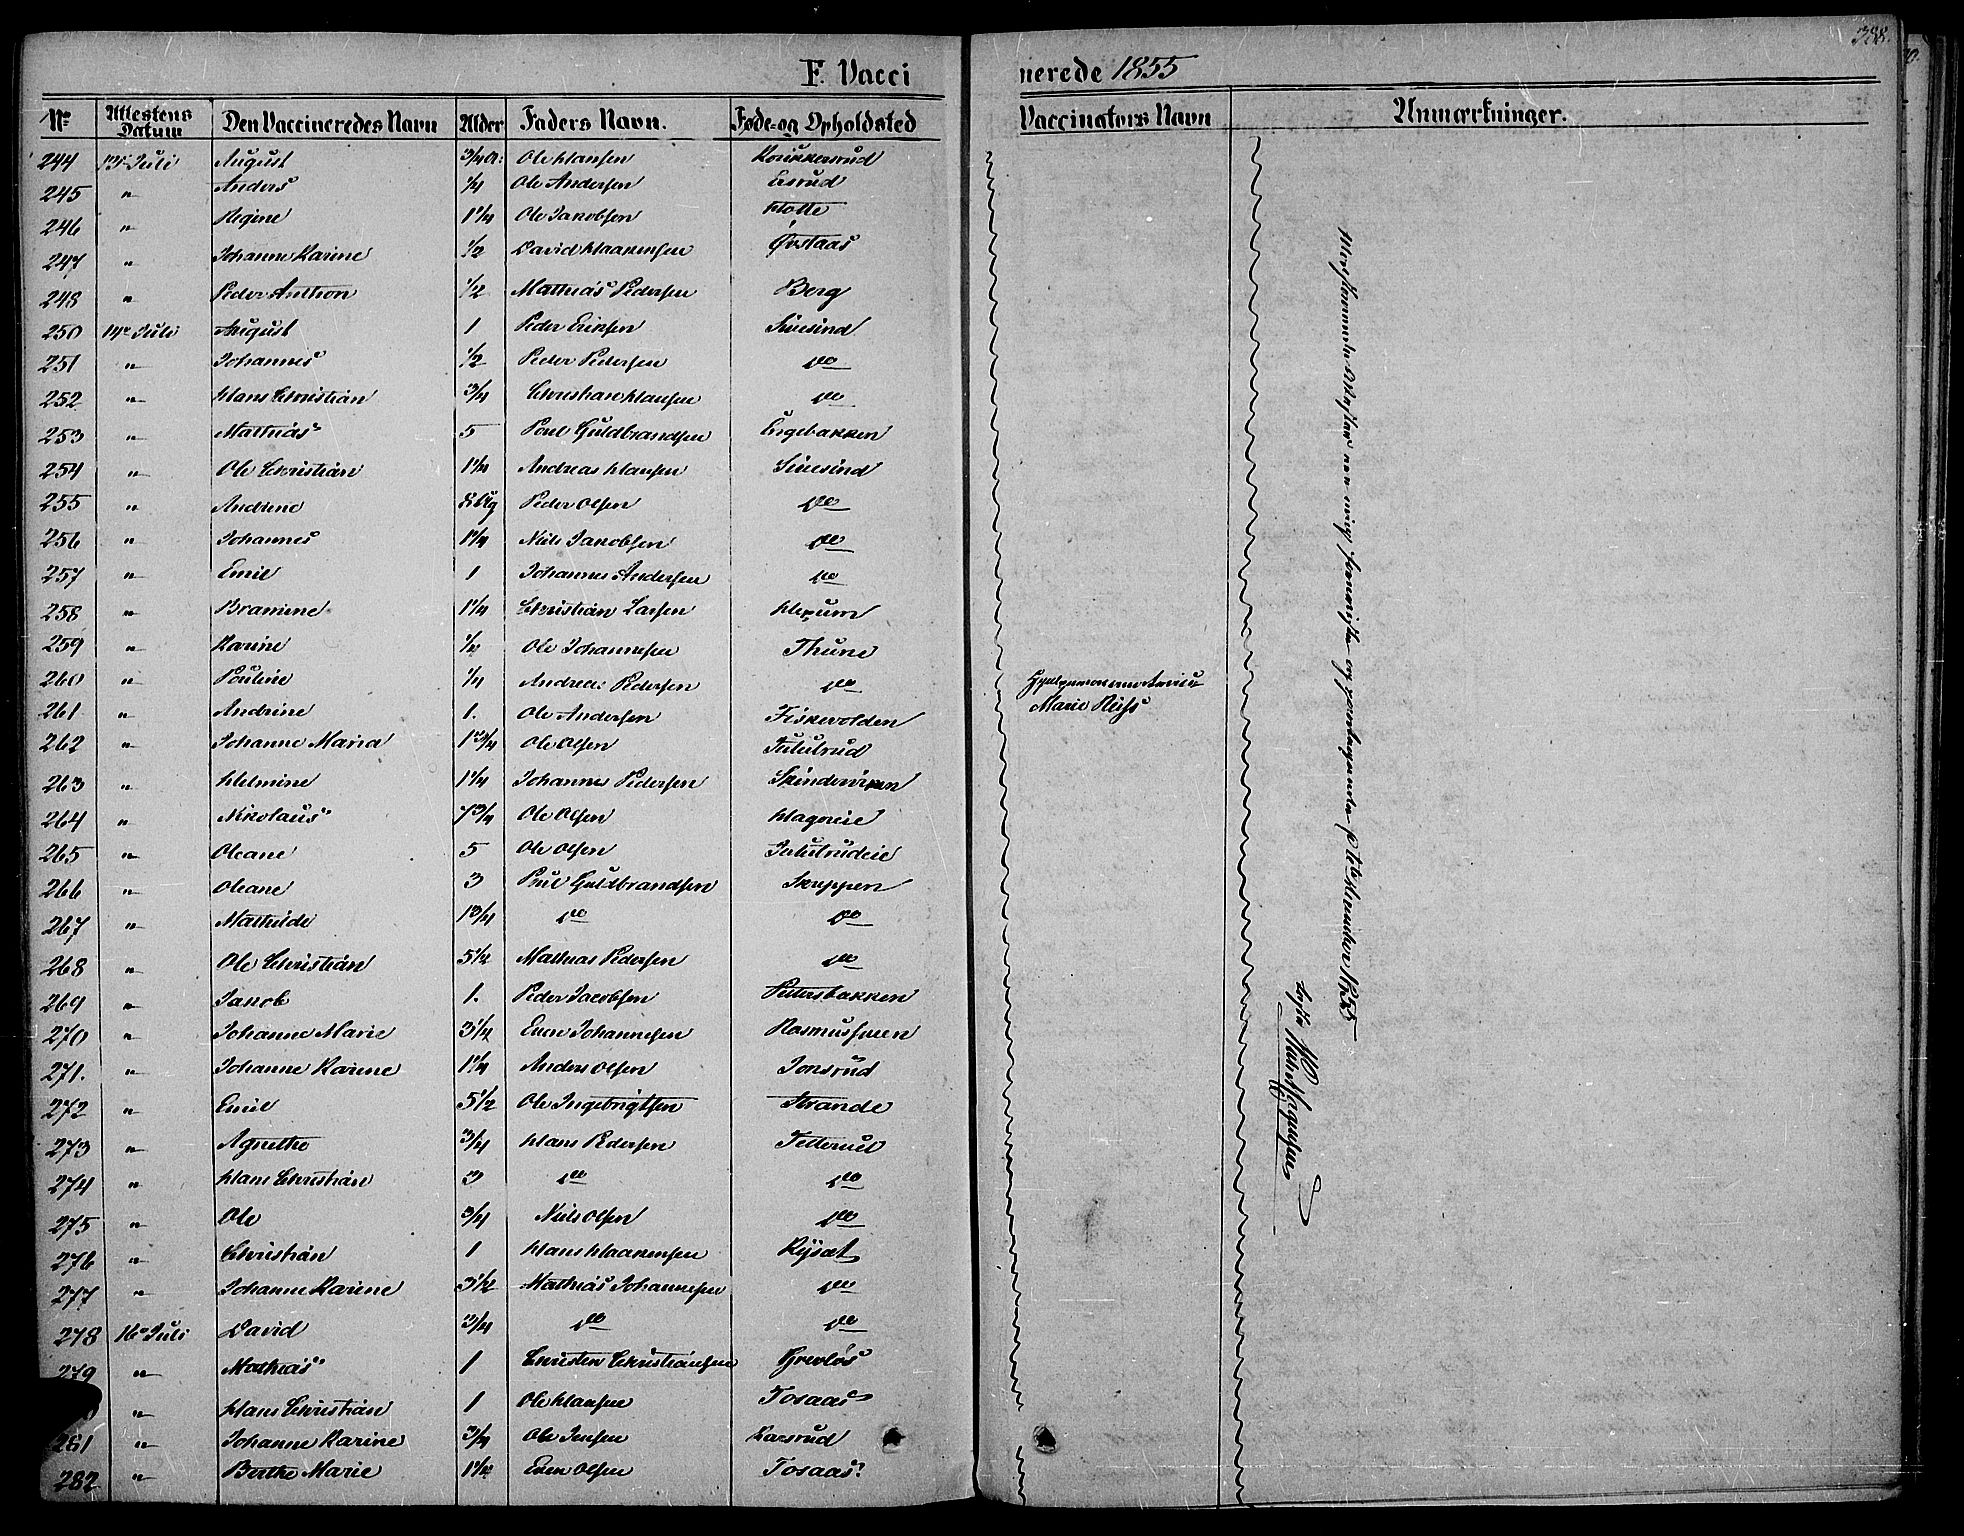 388.
F. Vacci nerede 1855
No Attestens Datum Den Vaccineredes Navn Alder Faders Navn. Føde- og Opholdsted Vaccinators Navn Anmærkninger.
244 13de Juli August 3/4 a: Ole Hansen
245 " Anders 1/4 Ole Andersen Ersrud
246 " Regine 1 1/4 Ole Jakobsen Holte
247 " Johanne Karine 1/2 David Haakensen Øvstaas
248 " Peder Anthon 1/2 Mathias Pedersen Berg
250 14de Juli August 1 Peder Eriksen
251 " Johannes 1/2 Peder Pedersen do
252 " Hans Christian 3/4 Christian Hansen do
253 " Mathias 5 Poul Guldbrandsen Engebakken
254 " Ole Christian 1 1/4 Andreas Hansen
255 " Andrine Peder Olsen do
256 " Johannes 1 1/4 Niels Jakobsen do
257 " Emil 1 Johannes Andersen do
258 " Bramine 1 1/4 Christian Larsen Hexum
259 " Karine 1/2 Ole Johannesen Thune
260 " Pouline 1/4 Andreas Pedersen do
Marie Reiss
261 " Andrine 1. Ole Andersen Fiskevolden
262 " Johanne Maria 1 3/4 Ole Olsen Tulutrud
263 " Helmine 1 1/4 Johannes Pedersen Skindeviken
264 " Nikolaus 7 3/4 Ole Olsen Hagoeie
265 " Oleane 5 Ole Olsen Tulutrudeie
266 " Oleane 3 Poul Guldbrandsen Skuppen
267 " Mathilde 1 3/4 do do
268 " Ole Christian 5 1/2 Mathias Pedersen do
269 " Jakob 1. Peder Jacobsen Pettersbakken
270 " Johanne Marie 3 1/4 Even Johannesen
271. " Johanne Karine 1 1/4 Anders Olsen Jonsrud
272 " Emil 5 1/2 Ole Ingebrigtsen Strande
273 " Agnethe 3/4 Hans Pedersen Tetterud
274 " Hans Christian 3 do do
275 " Ole 3/4 Niels Olsen do
276 " Christian 1 Hans Haakensen Rysæt
277 " Johanne Karine 3 1/2 Mathias Johannesen do
278 16de Juli David 3/4 do do
279 " Mathias 1 Christen Christiansen Grevløs
" Hans Christian 1 Ole Hansen Tosaas
281 " Johanne Karine 3/4 Ole Jensen Larsrud
282 " Berthe Marie 1 1/2 Even Olsen Tosaas
1855